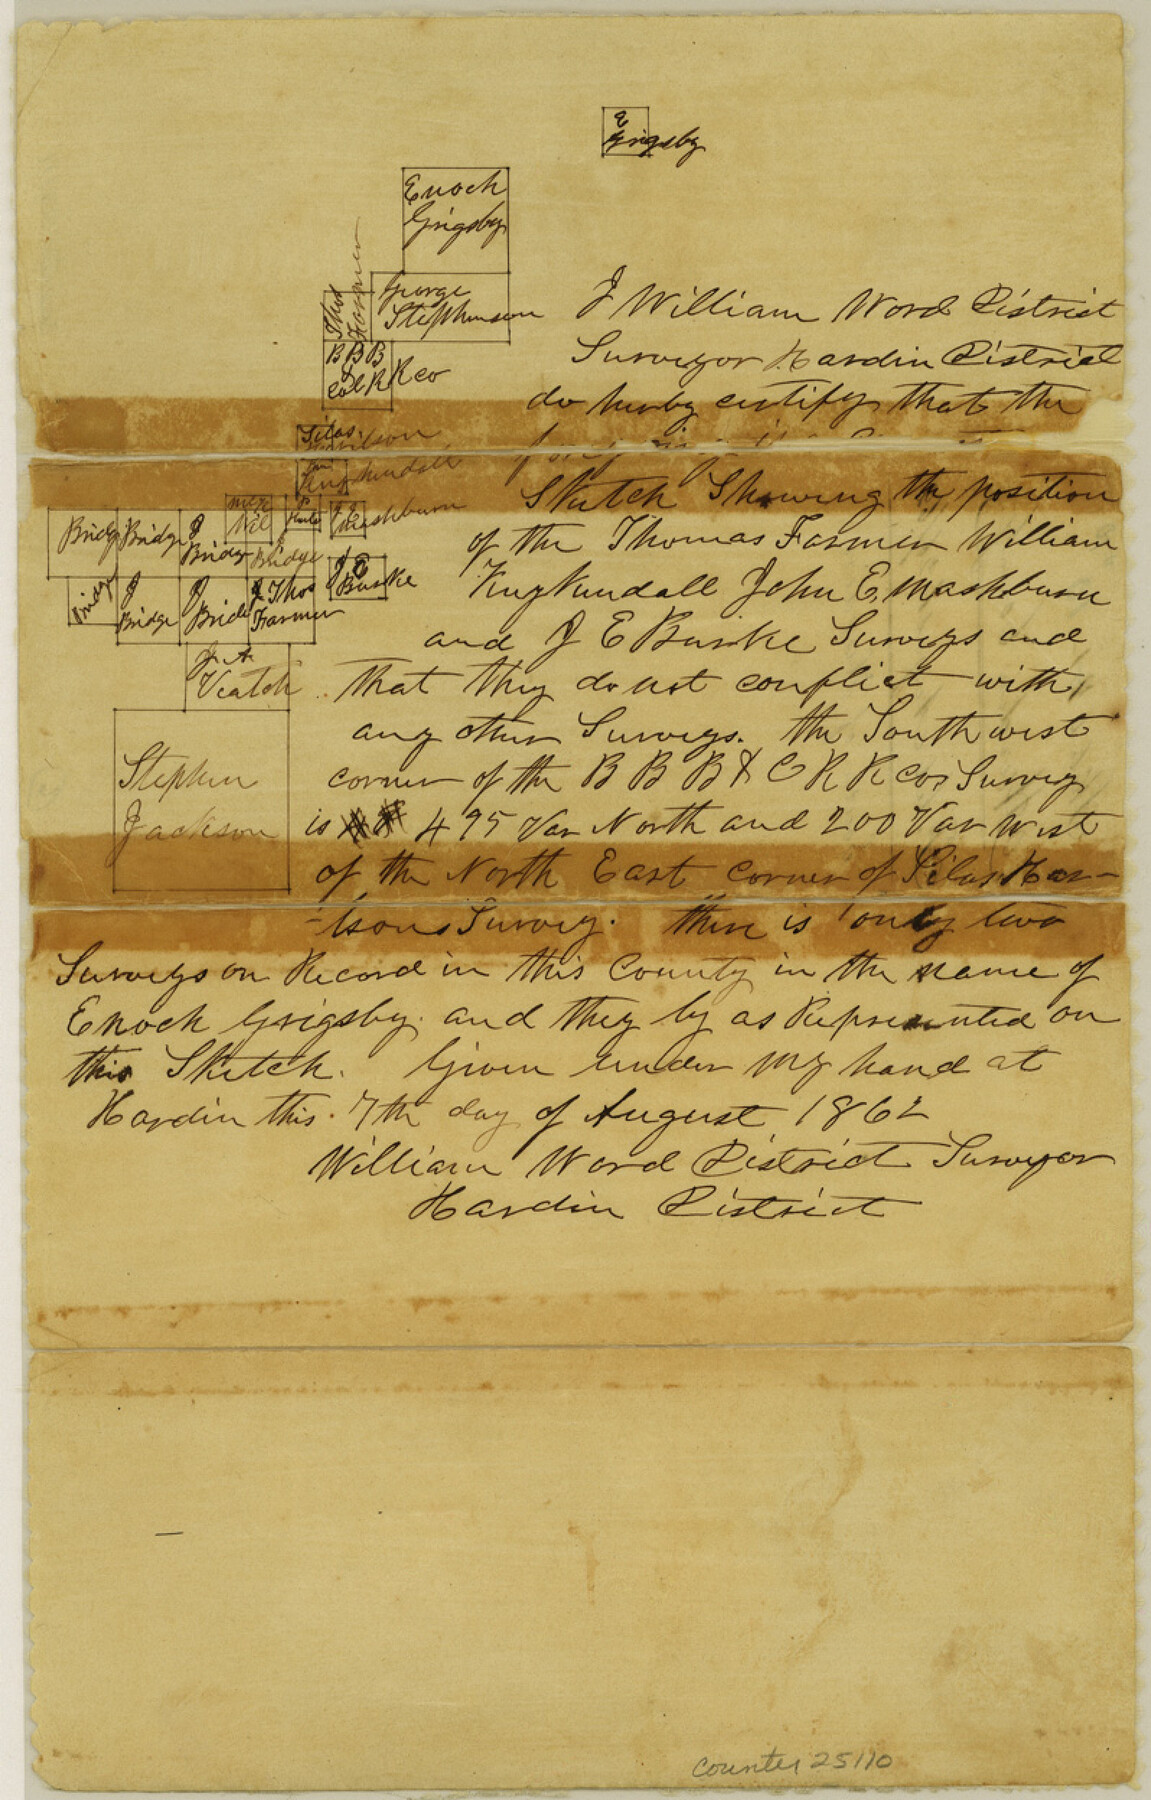 E
Grigsby
Enoch
Grigsby
George
Stephenson
Thos
Farmer
B B B
&
Co R R Co
Silas
J E
Mashburn
Bridge
Bridge
J
Bridge
Bridge
J E
Burke
Bridge
J
Bridge
J
Thos
Farmer
J. A.
Veatch
Stephen
Jackson
I William Word District
Surveyor Hardin District
do hereby certify that the
Sketch Showing the position
of the Thomas Farmer William
Kuykendall John E. Mashburn
and J E Burke Surveys and
that they do not conflict with
any other Surveys. the South west
corner of the B B B & C R R Cos Survey
is 495 Var North and 200 Var West
of the North East Corner of Silas Har-
-isons Survey. there is only two
Surveys on Record in this County in the name of
Enoch Grigsby. and they ly as Represented on
this Sketch. Given under my hand at
Hardin this 7th day of August 1862
William Word District Surveyor
Hardin District
counter 25110